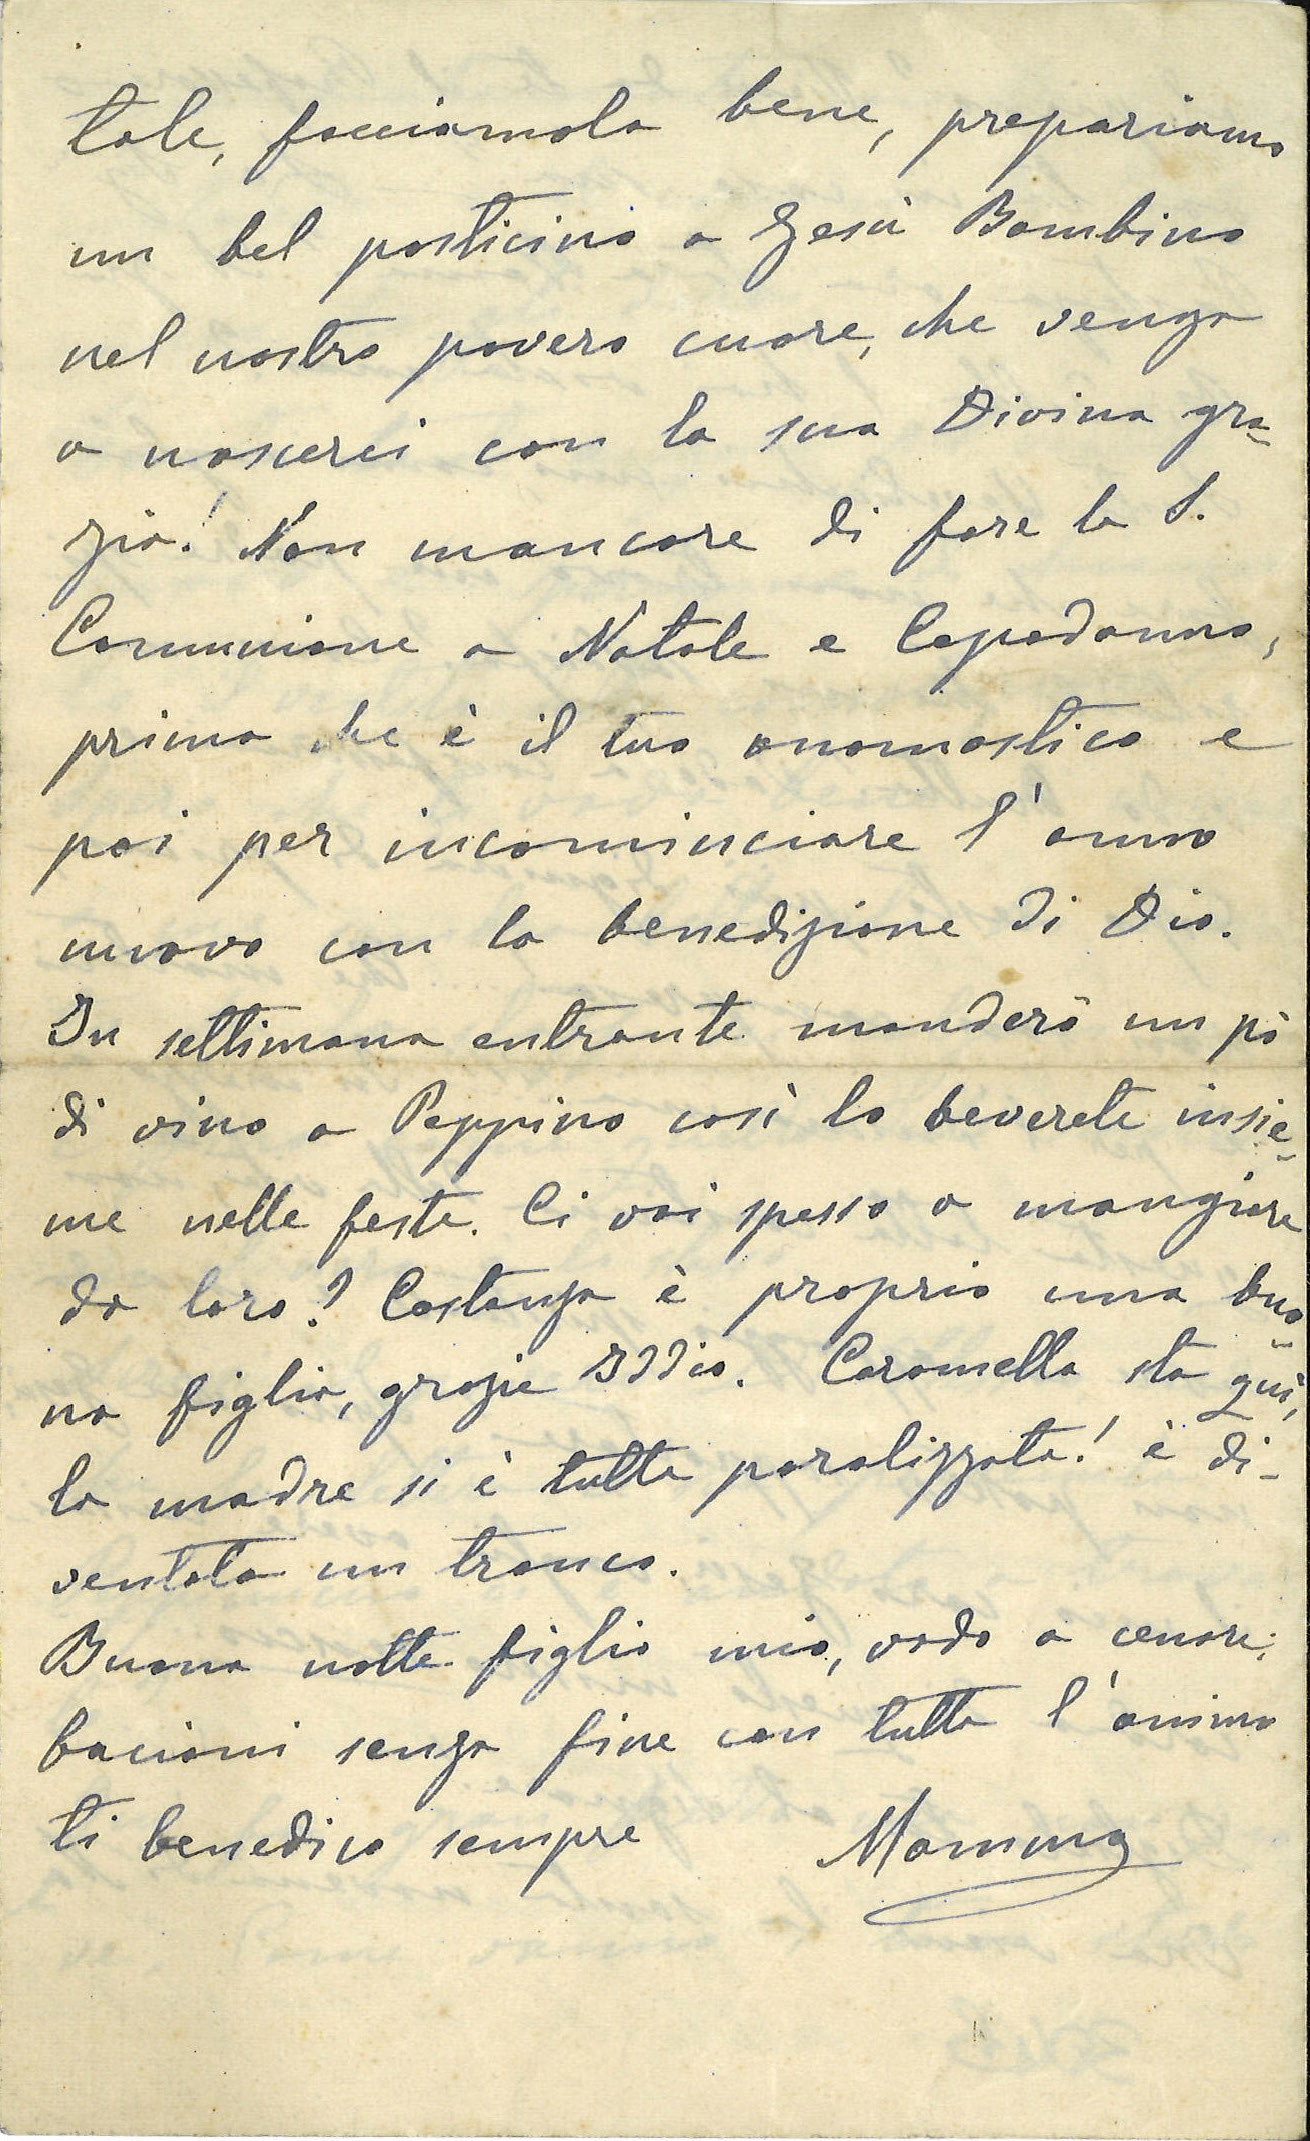 tale, facciamolo bene, prepariamo
un bel posticino a Gesù Bambino
nel nostro povero cuore, che venga
a nascerci con la sua Divina gra-
zia! Non mancare di fare la S.
Comunione a Natale e Capodanno,
prima che è il tuo onomastico e
poi per incominciare l'anno
nuovo con la benedizione di Dio.
In settimana entrante manderò un pò
di vino a Peppino così lo beverete insie-
me nelle feste. Ci vai spesso a mangiare
da loro? Costanza è proprio una buo-
na figlia, grazie Iddio. Caramella sta quì,
la madre si è tutta paralizzata! è di-
ventata un tronco.
Buona notte figlio mio, vado a cenare;
bacioni senza fine con tutta l'anima
ti benedico sempre Mamma